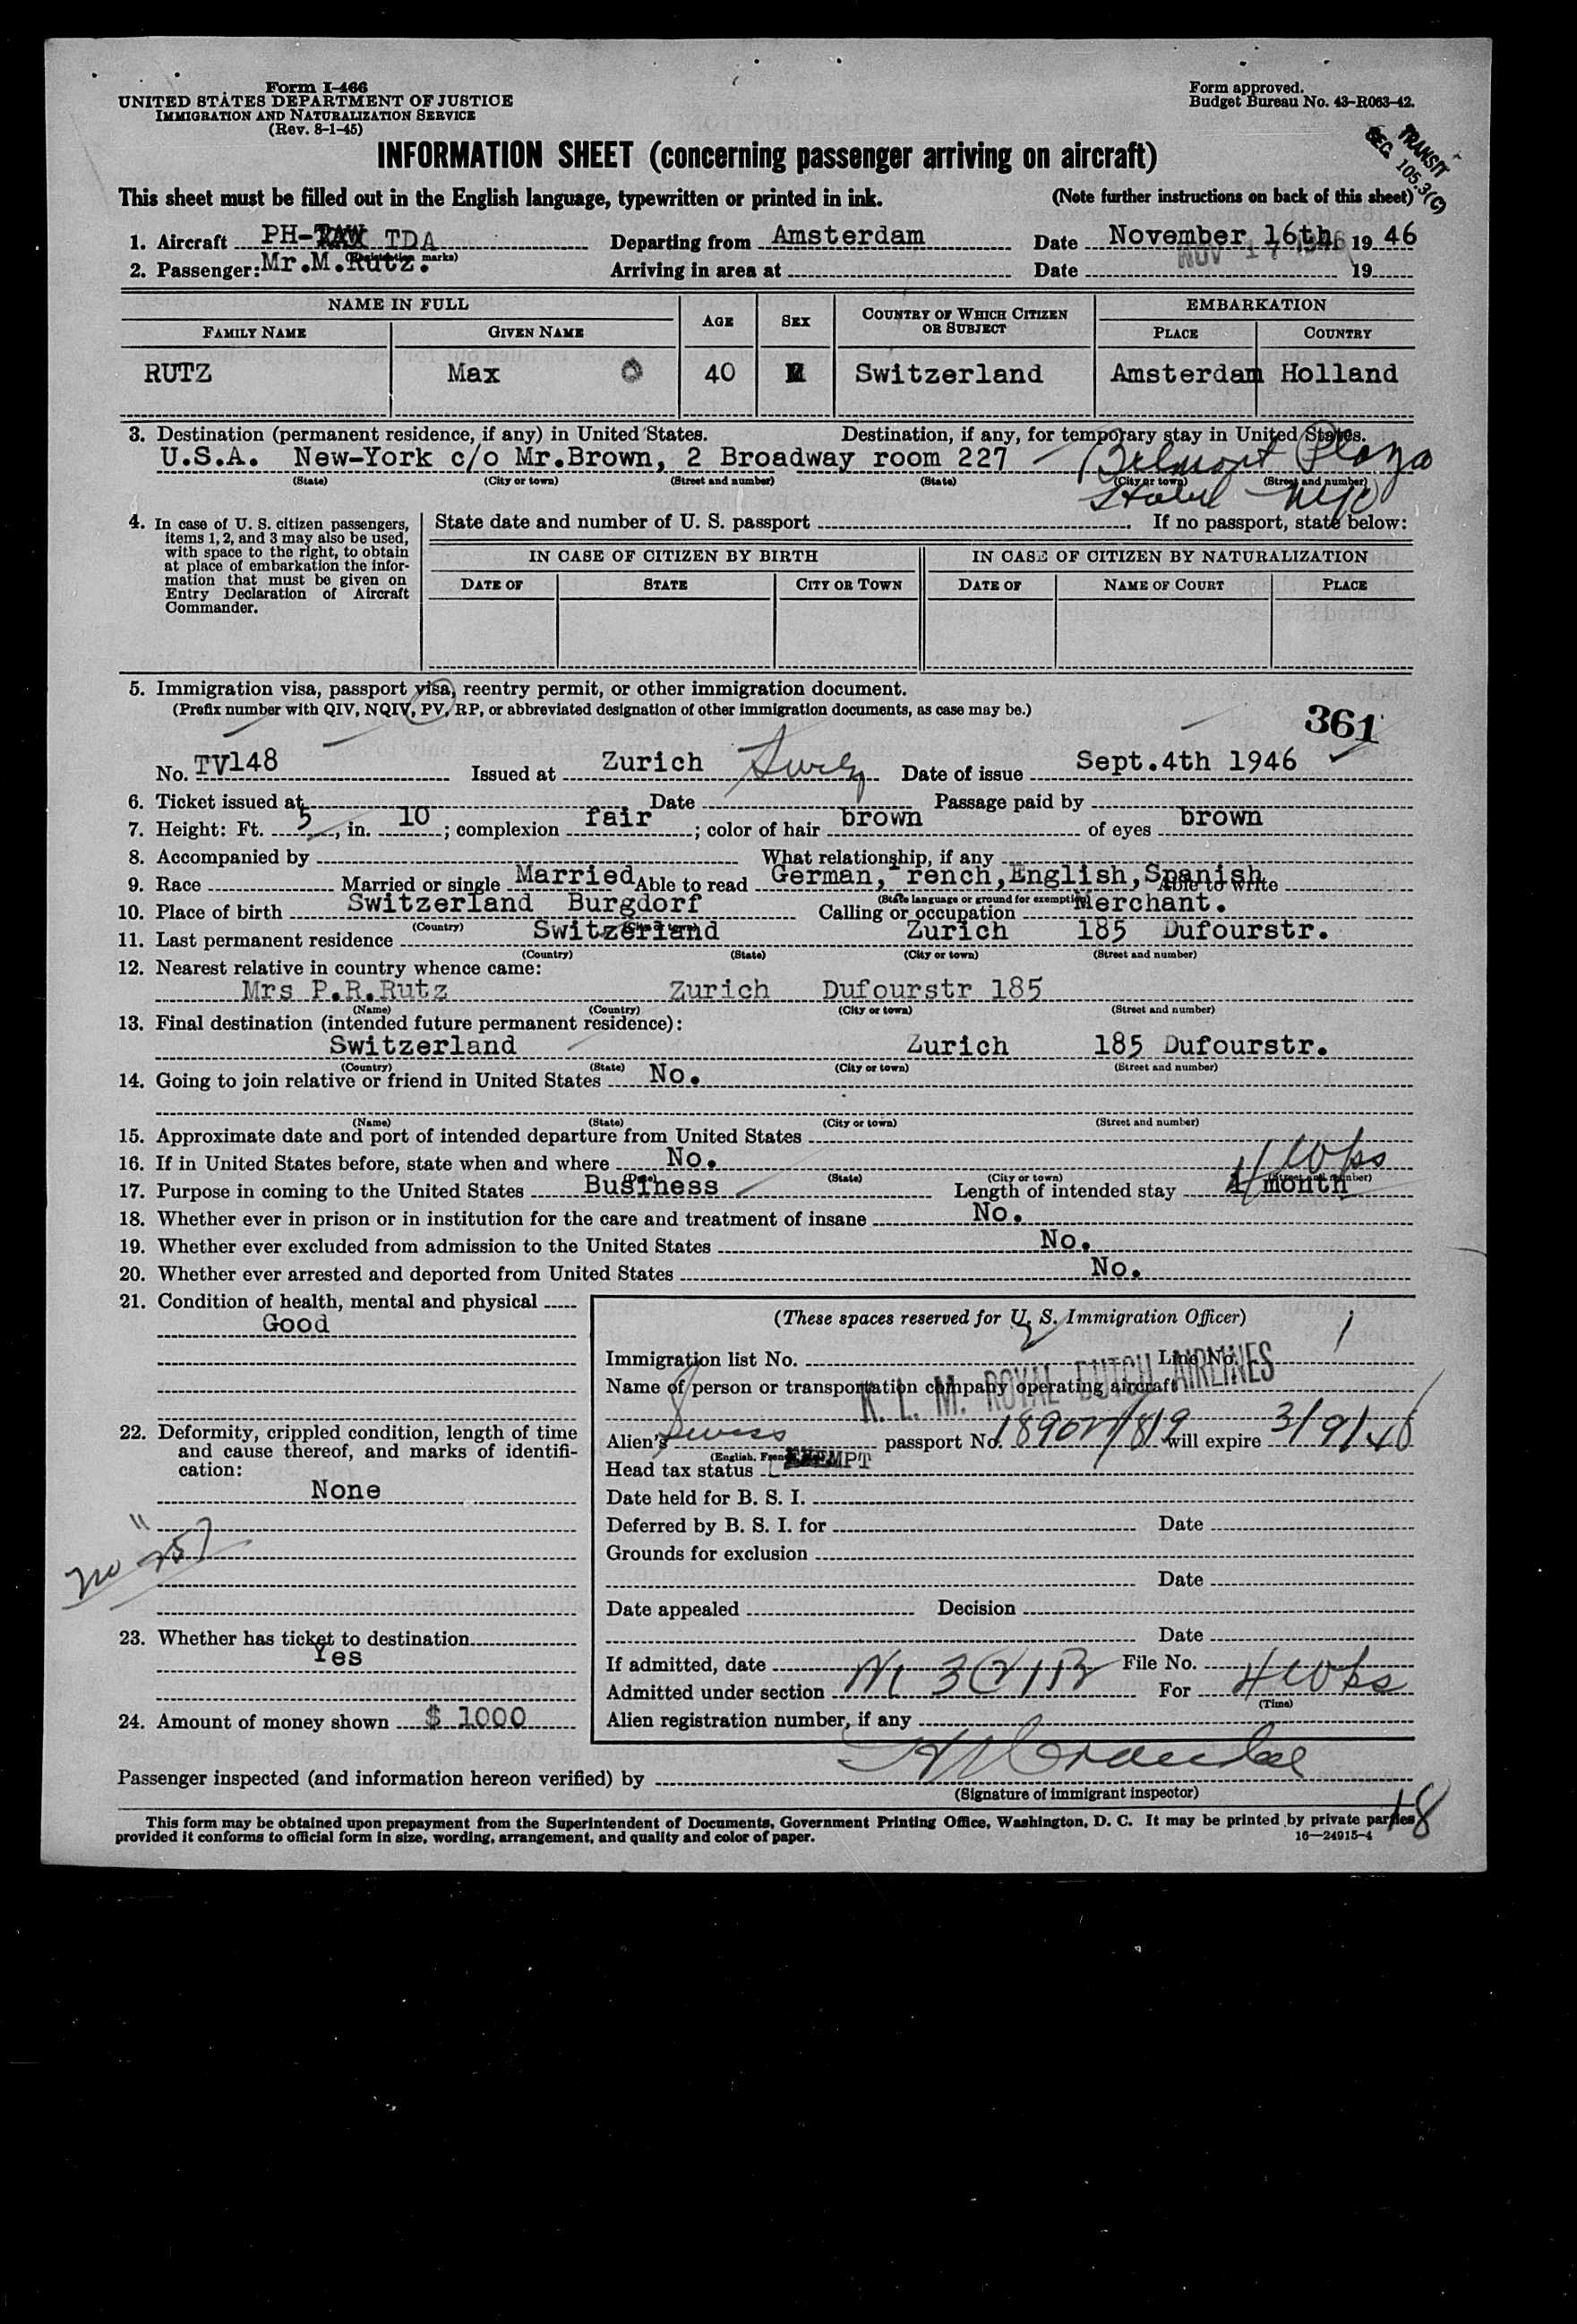 Form I-466
UNITED STATES DEPARTMENT OF JUSTICE
IMMIGRATION AND NATURALIZATION SERVICE
(Rev. 8-1-45)
Form approved.
Budget Bureau No. 43-R063-42.
TRANSIT
SEC. 105.3(C)
INFORMATION SHEET (concerning passenger arriving on aircraft)
This sheet must be filled out in the English language, typewritten or printed in ink. (Note further instructions on back of this sheet)
1. Aircraft PH- TDA Departing from Amsterdam Date November 16th, 1946
(Registration marks)
2. Passenger: Mr.M.Rutz. Arriving in area at Date NOV 17 1946 19
NAME IN FULL AGE SEX COUNTRY OF WHICH CITIZEN OR SUBJECT EMBARKATION
FAMILY NAME GIVEN NAME PLACE COUNTRY
RUTZ Max 40 M Switzerland Amsterdam Holland
3. Destination (permanent residence, if any) in United States. Destination, if any, for temporary stay in United States.
U.S.A. New-York c/o Mr.Brown, 2 Broadway room 227 Belmont Plaza
(State) (City or town) (Street and number) (State) (City or town) (Street and number)
Hotel NYC
4. In case of U. S. citizen passengers, items 1, 2, and 3 may also be used, with space to the right, to obtain at place of embarkation the information that must be given on Entry Declaration of Aircraft Commander.
State date and number of U. S. passport If no passport, state below:
IN CASE OF CITIZEN BY BIRTH IN CASE OF CITIZEN BY NATURALIZATION
DATE OF STATE CITY OR TOWN DATE OF NAME OF COURT PLACE
5. Immigration visa, passport visa, reentry permit, or other immigration document.
(Prefix number with QIV, NQIV, PV, RP, or abbreviated designation of other immigration documents, as case may be.)
361
No. TV148 Issued at Zurich Date of issue Sept.4th 1946
6. Ticket issued at Date Passage paid by
7. Height: Ft. 5, in. 10; complexion fair; color of hair brown of eyes brown
8. Accompanied by What relationship, if any
9. Race Married or single Married Able to read German, rench,English,Spanish Able to write
(State language or ground for exemption)
10. Place of birth Switzerland Burgdorf Calling or occupation Merchant.
(Country) (City or town)
11. Last permanent residence Switzerland Zurich 185 Dufourstr.
(Country) (State) (City or town) (Street and number)
12. Nearest relative in country whence came:
Mrs P.R.Rutz Zurich Dufourstr 185
(Name) (Country) (City or town) (Street and number)
13. Final destination (intended future permanent residence):
Switzerland Zurich 185 Dufourstr.
(Country) (State) (City or town) (Street and number)
14. Going to join relative or friend in United States No.
(Name) (State) (City or town) (Street and number)
15. Approximate date and port of intended departure from United States
16. If in United States before, state when and where No.
(State) (City or town) (Street and number)
4 Wks
17. Purpose in coming to the United States Business Length of intended stay 1 month
18. Whether ever in prison or in institution for the care and treatment of insane No.
19. Whether ever excluded from admission to the United States No.
20. Whether ever arrested and deported from United States No.
21. Condition of health, mental and physical
Good
(These spaces reserved for U. S. Immigration Officer)
Immigration list No. Line No. 1
Name of person or transportation company operating aircraft
K. L. M. ROYAL DUTCH AIRLINES
22. Deformity, crippled condition, length of time and cause thereof, and marks of identification:
None
Alien's Swiss passport No. will expire 3/9/48
Head tax status EXEMPT
Date held for B. S. I.
Deferred by B. S. I. for Date
Grounds for exclusion
Date
Date appealed Decision
Date
23. Whether has ticket to destination
Yes
If admitted, date File No.
Admitted under section 3(2)B For 4 Wks
(Time)
24. Amount of money shown $ 1000
Alien registration number, if any
Passenger inspected (and information hereon verified) by
(Signature of immigrant inspector)
18
This form may be obtained upon prepayment from the Superintendent of Documents, Government Printing Office, Washington, D. C. It may be printed by private parties
provided it conforms to official form in size, wording, arrangement, and quality and color of paper. 16—24915-4